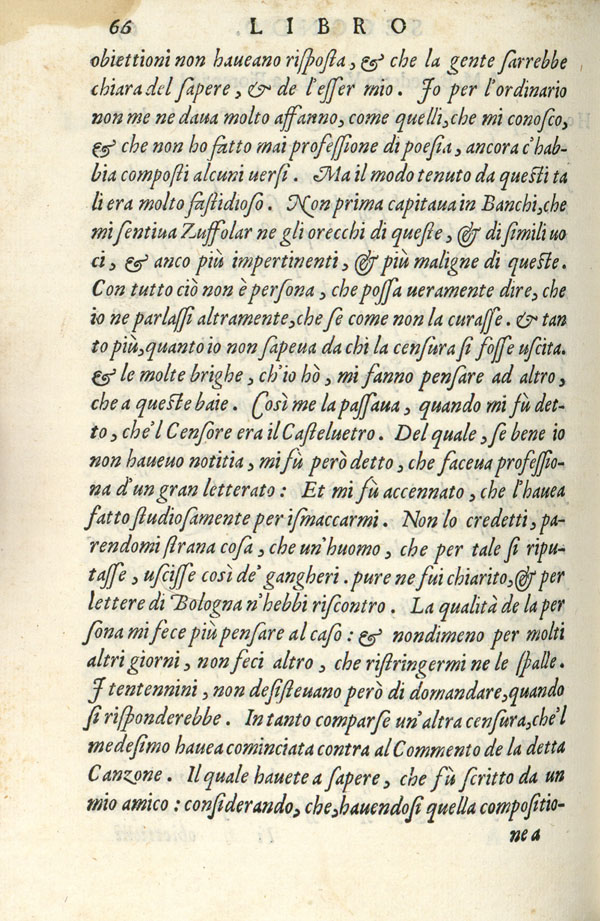 66 LIBRO
obiettioni non haueano risposta, & che la gente sarrebbe
chiara del sapere, & de l'esser mio. Io per l'ordinario
non me ne daua molto affanno, come quelli, che mi conosco,
& che non ho fatto mai professione di poesia, ancora c'hab-
bia composti alcuni uersi. Ma il modo tenuto da questi ta
li era molto fastidioso. Non prima capitaua in Banchi, che
mi sentiua Zuffolar ne gli orecchi di queste, & di simili uo
ci, & anco più impertinenti, & più maligne di queste.
Con tutto ciò non è persona, che possa ueramente dire, che
io ne parlassi altramente, che se come non la curasse. & tan
to più, quanto io non sapeua da chi la censura si fosse uscita.
& le molte brighe, ch'io hò, mi fanno pensare ad altro,
che a queste baie. Così me la passaua, quando mi fù det-
to, che'l Censore era il Casteluetro. Del quale, se bene io
non haueuo notitia, mi fù però detto, che faceua professio-
na d'un gran letterato: Et mi fù accennato, che l'hauea
fatto studiosamente per ismaccarmi. Non lo credetti, pa-
rendomi strana cosa, che un'huomo, che per tale si ripu-
tasse, uscisse così de' gangheri. pure ne fui chiarito, & per
lettere di Bologna n'hebbi riscontro. La qualità de la per
sona mi fece più pensare al caso: & nondimeno per molti
altri giorni, non feci altro, che ristringermi ne le spalle.
I tentennini, non desisteuano però di domandare, quando
si risponderebbe. In tanto comparse un'altra censura, che'l
medesimo hauea cominciata contra al Commento de la detta
Canzone. Il quale hauete a sapere, che fù scritto da un
mio amico: considerando, che, hauendosi quella compositio-
ne a